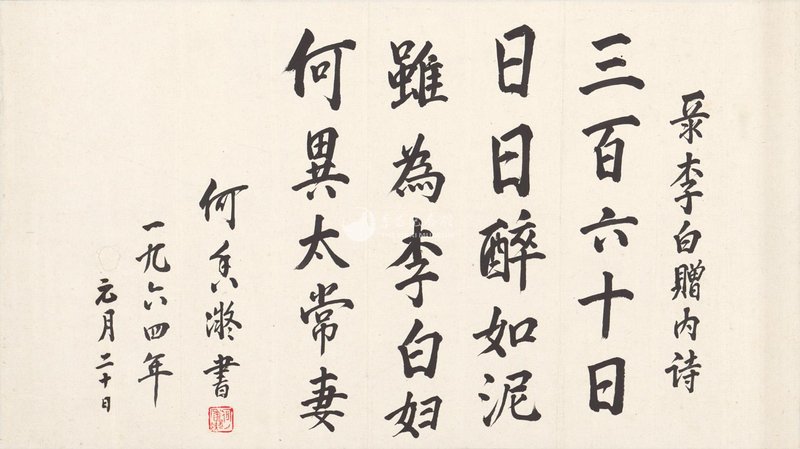 录李白贈内诗
三百六十日
日日醉如泥
雖為李白妇
何異太常妻
何香凝書
一九六四年
元月二十日